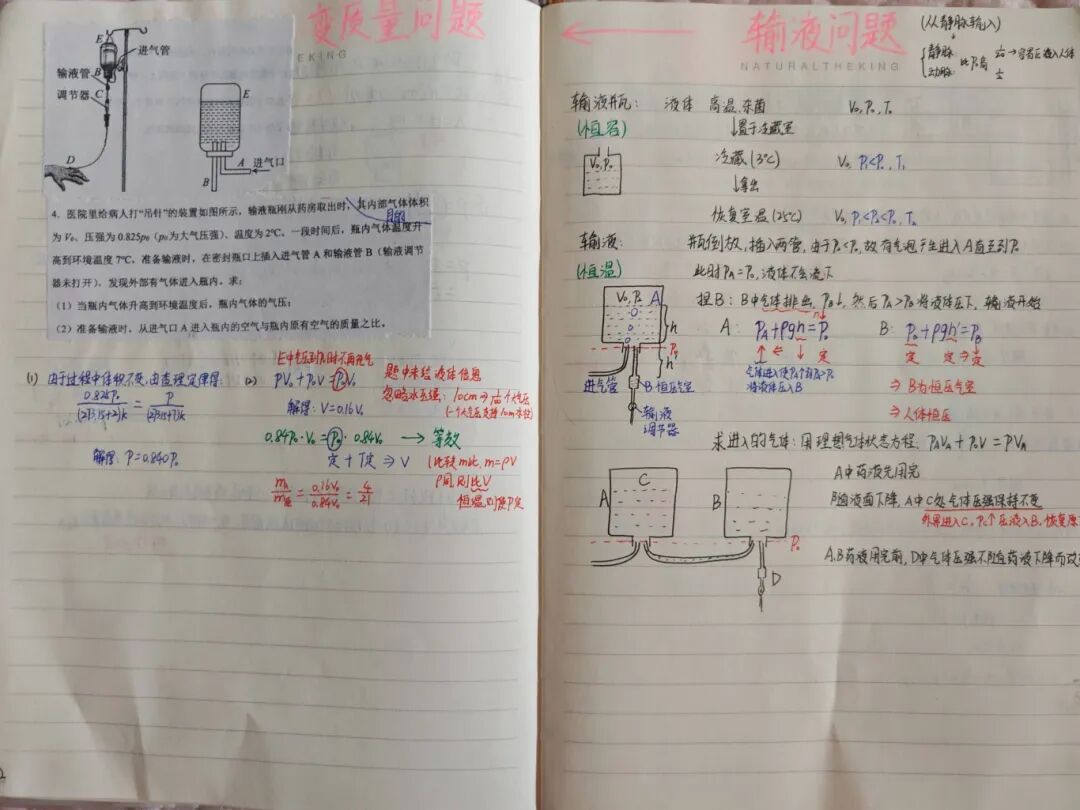 变质量问题
EKING
E
进气管
输液管 B
调节器 C
D
E
A 进气口
B
4. 医院里给病人打“吊针”的装置如图所示，输液瓶刚从药房取出时，其内部气体体积
为 V₀、压强为 0.825p₀（p₀为大气压强）、温度为 2℃，一段时间后，瓶内气体温度升
高到环境温度 7℃，准备输液时，在密封瓶口上插入进气管 A 和输液管 B（输液调节
器未打开）、发现外部有气体进入瓶内。求：
（1）当瓶内气体升高到环境温度后，瓶内气体的气压；
（2）准备输液时，从进气口 A 进入瓶内的空气与瓶内原有空气的质量之比。
(1) 由于过程中体积不变，由查理定律得：
0.825P₀/(273.15+2)K = P/(273.15+7)K
解得：P=0.840P₀
E中气压到P₀时不再充气
(2) PV₀+P₀V=P₀V₀
解得：V=0.16V₀
0.84P₀·V₀=P₀·0.84V₀ → 等效
定+T定⇒V
m入/m原=0.16V₀/0.84V₀=4/21
题中未给液体信息
忽略水压强：10cm⇒1/100个大气压
(一个大气压支持10m水柱)
(比较m比，m=ρV
ρ同，则比V
恒温，则使P定
输液问题
NATURALTHEKING
(从静脉输入)
静脉
动脉
比P₀高
输液瓶： 液体 高温杀菌 V₀,P₀,T₀
(恒容)
↓置于冷藏室
V₀,P₀
冷藏(3℃) V₀ P₁<P₀,T₁
↓拿出
恢复室温(25℃) V₀,P₁<P₂<P₀,T₀
输液： 瓶倒放，插入两管，由于P₂<P₀，故有气泡产生进入A直至到P₀
(恒温) 此时PA=P₀，液体不会流下
V₀,P₀ A
h
P₀
h'
进气管
B 恒压气室
输液
调节器
捏B：B中气体排出，PB↓，然后PA>PB将液体压下，输液开始
A：PA+ρgh=P₀ B：P₀+ρgh'=PB
定 定 定⇒定
将液体压入B
⇒B为恒压气室
⇒人体恒压
求进入的气体：用理想气体状态方程：PAVA+P₀V=PVA
A C
B
P₀
D
A中药液先用完
随液面下降，A中C处气体压强保持不变
外界进入C，PC↑压液入B，恢复原
A.B药液用完前，D中气体压强不随药液下降而改